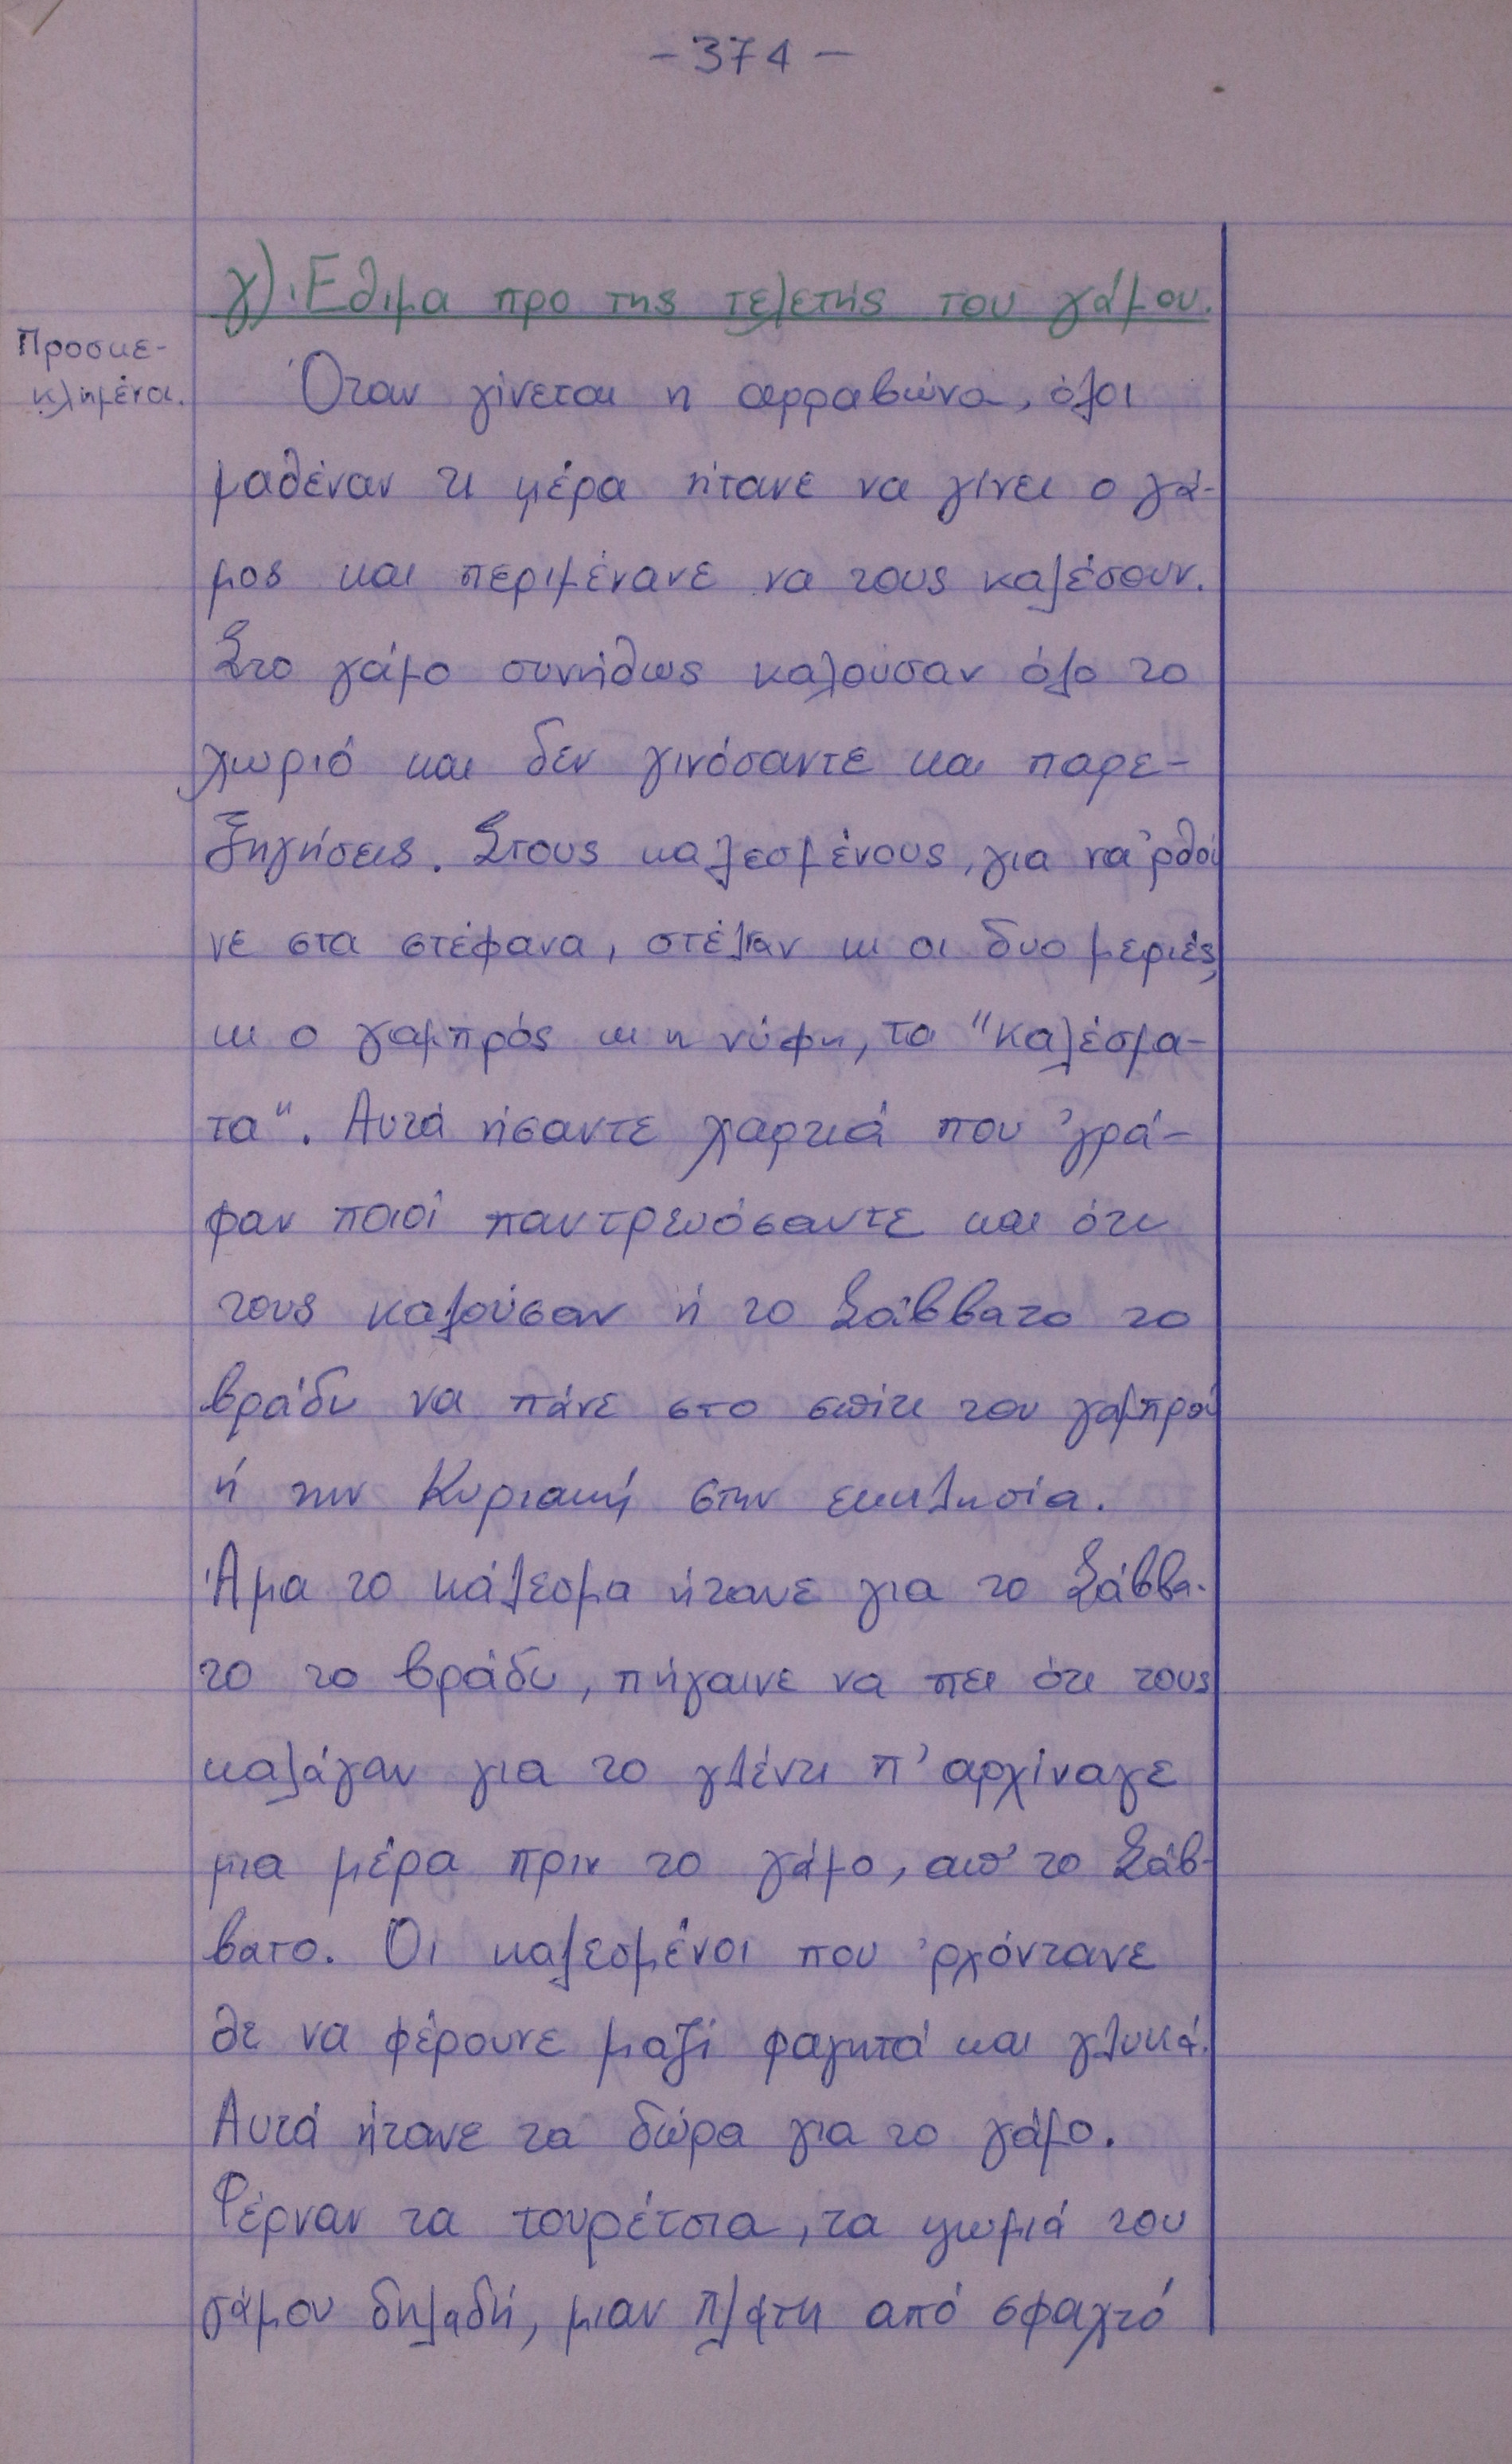 - 374 -
γ) Έθιμα προ της τελετής του γάμου.
Προσκε-
κλημένοι.
Όταν γίνεται η αρραβώνα, όλοι
μαθέναν τι μέρα ήτανε να γίνει ο γά-
μος και περιμένανε να τους καλέσουν.
Στο γάμο συνήθως καλούσαν όλο το
χωριό και δεν γινόσαντε και παρε-
ξηγήσεις. Στους καλεσμένους, για να 'ρθού
νε στα στέφανα, στέλναν κι οι δυο μεριές,
κι ο γαμπρός κι η νύφη, τα "καλέσμα-
τα". Αυτά ήσαντε χαρτιά που 'γρά-
φαν ποιοί παντρευόσαντε και ότι
τους καλούσαν ή το Σάββατο το
βράδυ να πάνε στο σπίτι του γαμπρού
ή την Κυριακή στην εκκλησία.
Άμα το κάλεσμα ήτανε για το Σάββα-
το το βράδυ, πήγαινε να πει ότι τους
καλάγαν για το γλέντι π' αρχίναγε
μια μέρα πριν το γάμο, απ' το Σάβ-
βατο. Οι καλεσμένοι που 'ρχόντανε
θε να φέρουνε μαζί φαγητά και γλυκά.
Αυτά ήτανε τα δώρα για το γάμο.
Φέρναν τα τουρέτσια, τα ψωμιά του
γάμου δηλαδή, μιαν πλάτη από σφαχτό